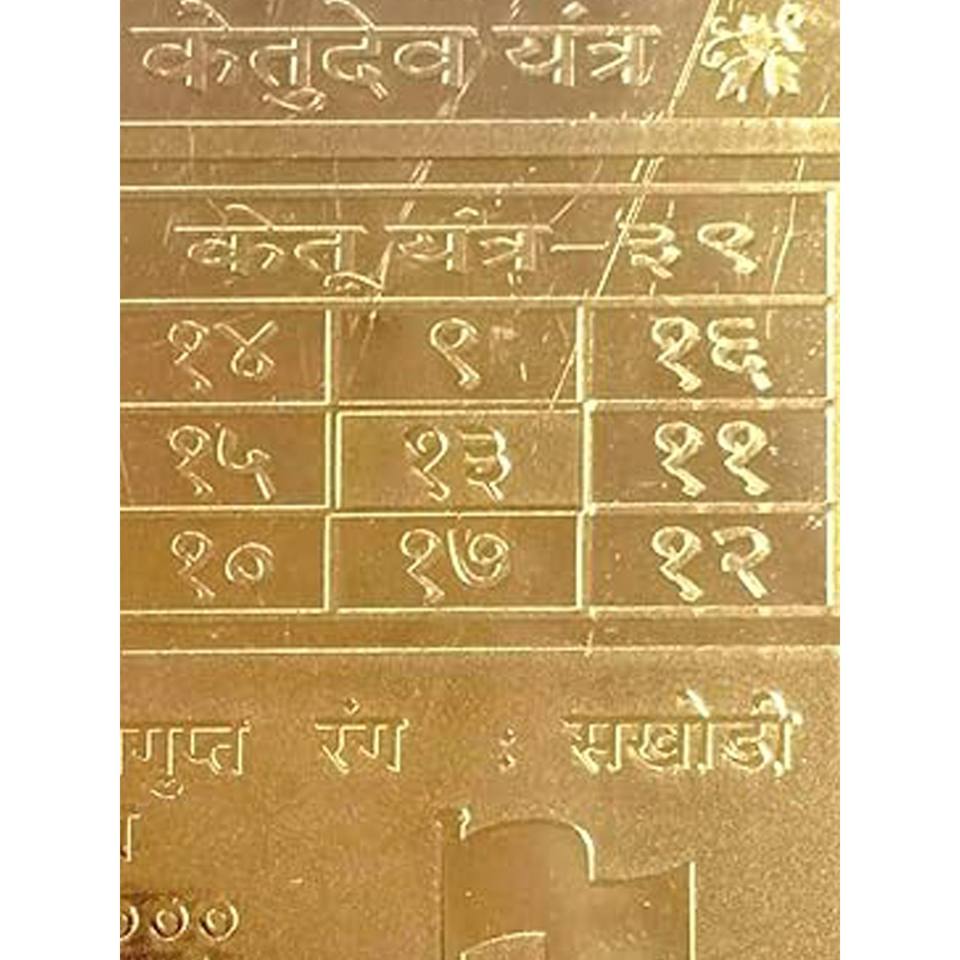 केतुदेव यंत्र
केतु यंत्र-३९
१४ ९ १६
१५ १३ ११
१० १७ १२
रंग : सखोडी
०००